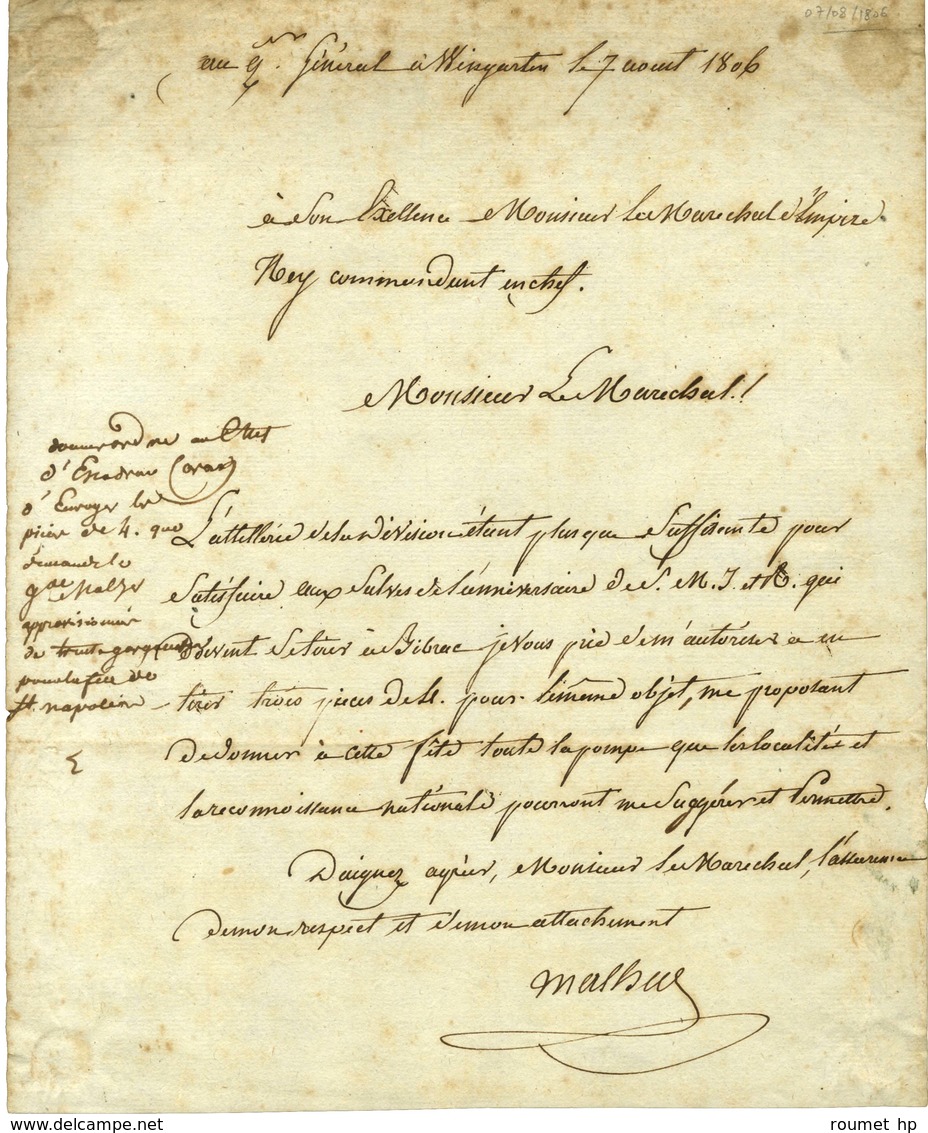 07/08/1806
au qer. Général à Wingarten le 7 aout 1806
à Son Exellence Monsieur le Maréchal d'Empire
Ney commandant en chef.
Monsieur Le Maréchal !
donner ordre au Chef
d'Escadron
d'Envoyer les
pièces de 4. que
demande le
gal Malher
approvisionnées
de trente gargousses
pour la fête de
St. napoléon
L'attillérie de la division étant plus que Suffisante pour
Satisfaire aux Salves de l'anniversaire de S. M. I. et R. qui
doivent Se tirer à Bibrac je vous prie de m'autoriser a en
tirer trois pieces de 4. pour le même objet, me proposant
de donner à cette fête toute la pompe que les localités et
la reconnoissance nationale pourront me Suggérer et Permettre.
Daignez agréer, Monsieur le Maréchal, l'assurance
de mon respect et de mon attachement
Malher
roumet hp